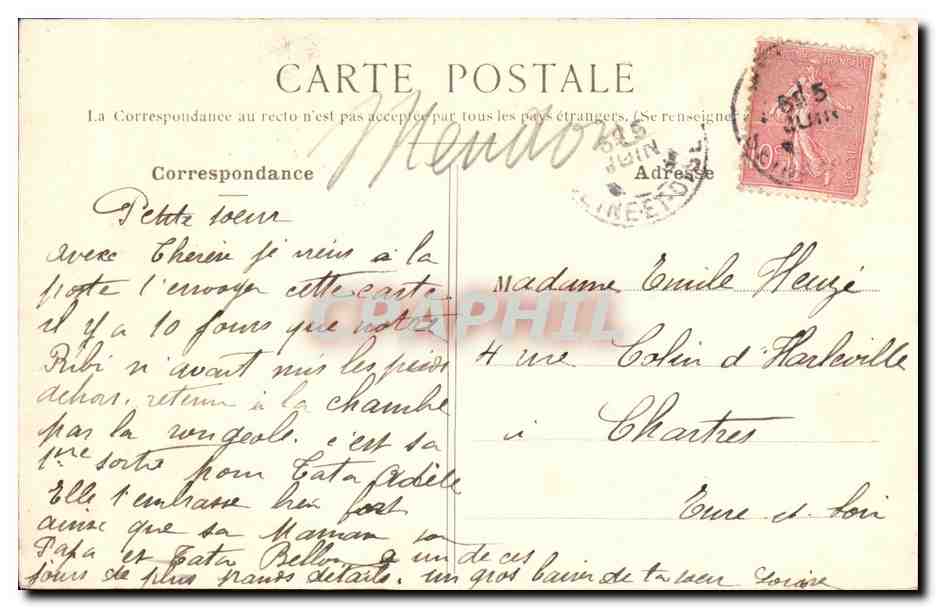 CARTE POSTALE
La Correspondance au recto n'est pas acceptée par tous les pays étrangers. (Se renseigner
Correspondance
Adresse
JUIN
SEINE-ET-OISE
JUIN
CPAPHIL
Petite soeur
avec Thérèse je viens à la
poste t'envoyer cette carte
il y a 10 jours que notre
Bibi n'avait mis les pieds
dehors, retenue à la chambre
par la rougeole. c'est sa
1ère sortie pour Tata Adèle
Elle t'embrasse bien fort
ainsi que sa Maman son
Papa et Tata Bellon à un de ces
jours de plus grands détails. un gros baiser de ta soeur
Madame Emile Heuzé
4 rue Colin d'Harleville
à Chartres
Eure et Loir